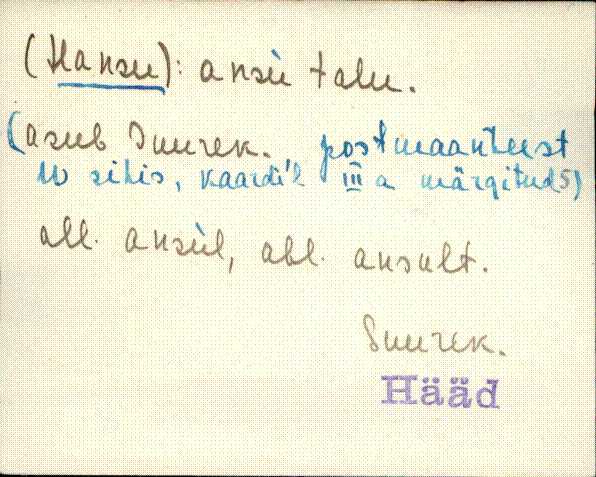 (Hansu): ansu̇ talu.
(asub Suurek. postmaanteest
W sihis, kaardi'l III a märgitud 5)
all. ansu̇l, abl. ansult.
Suurek.
Hääd